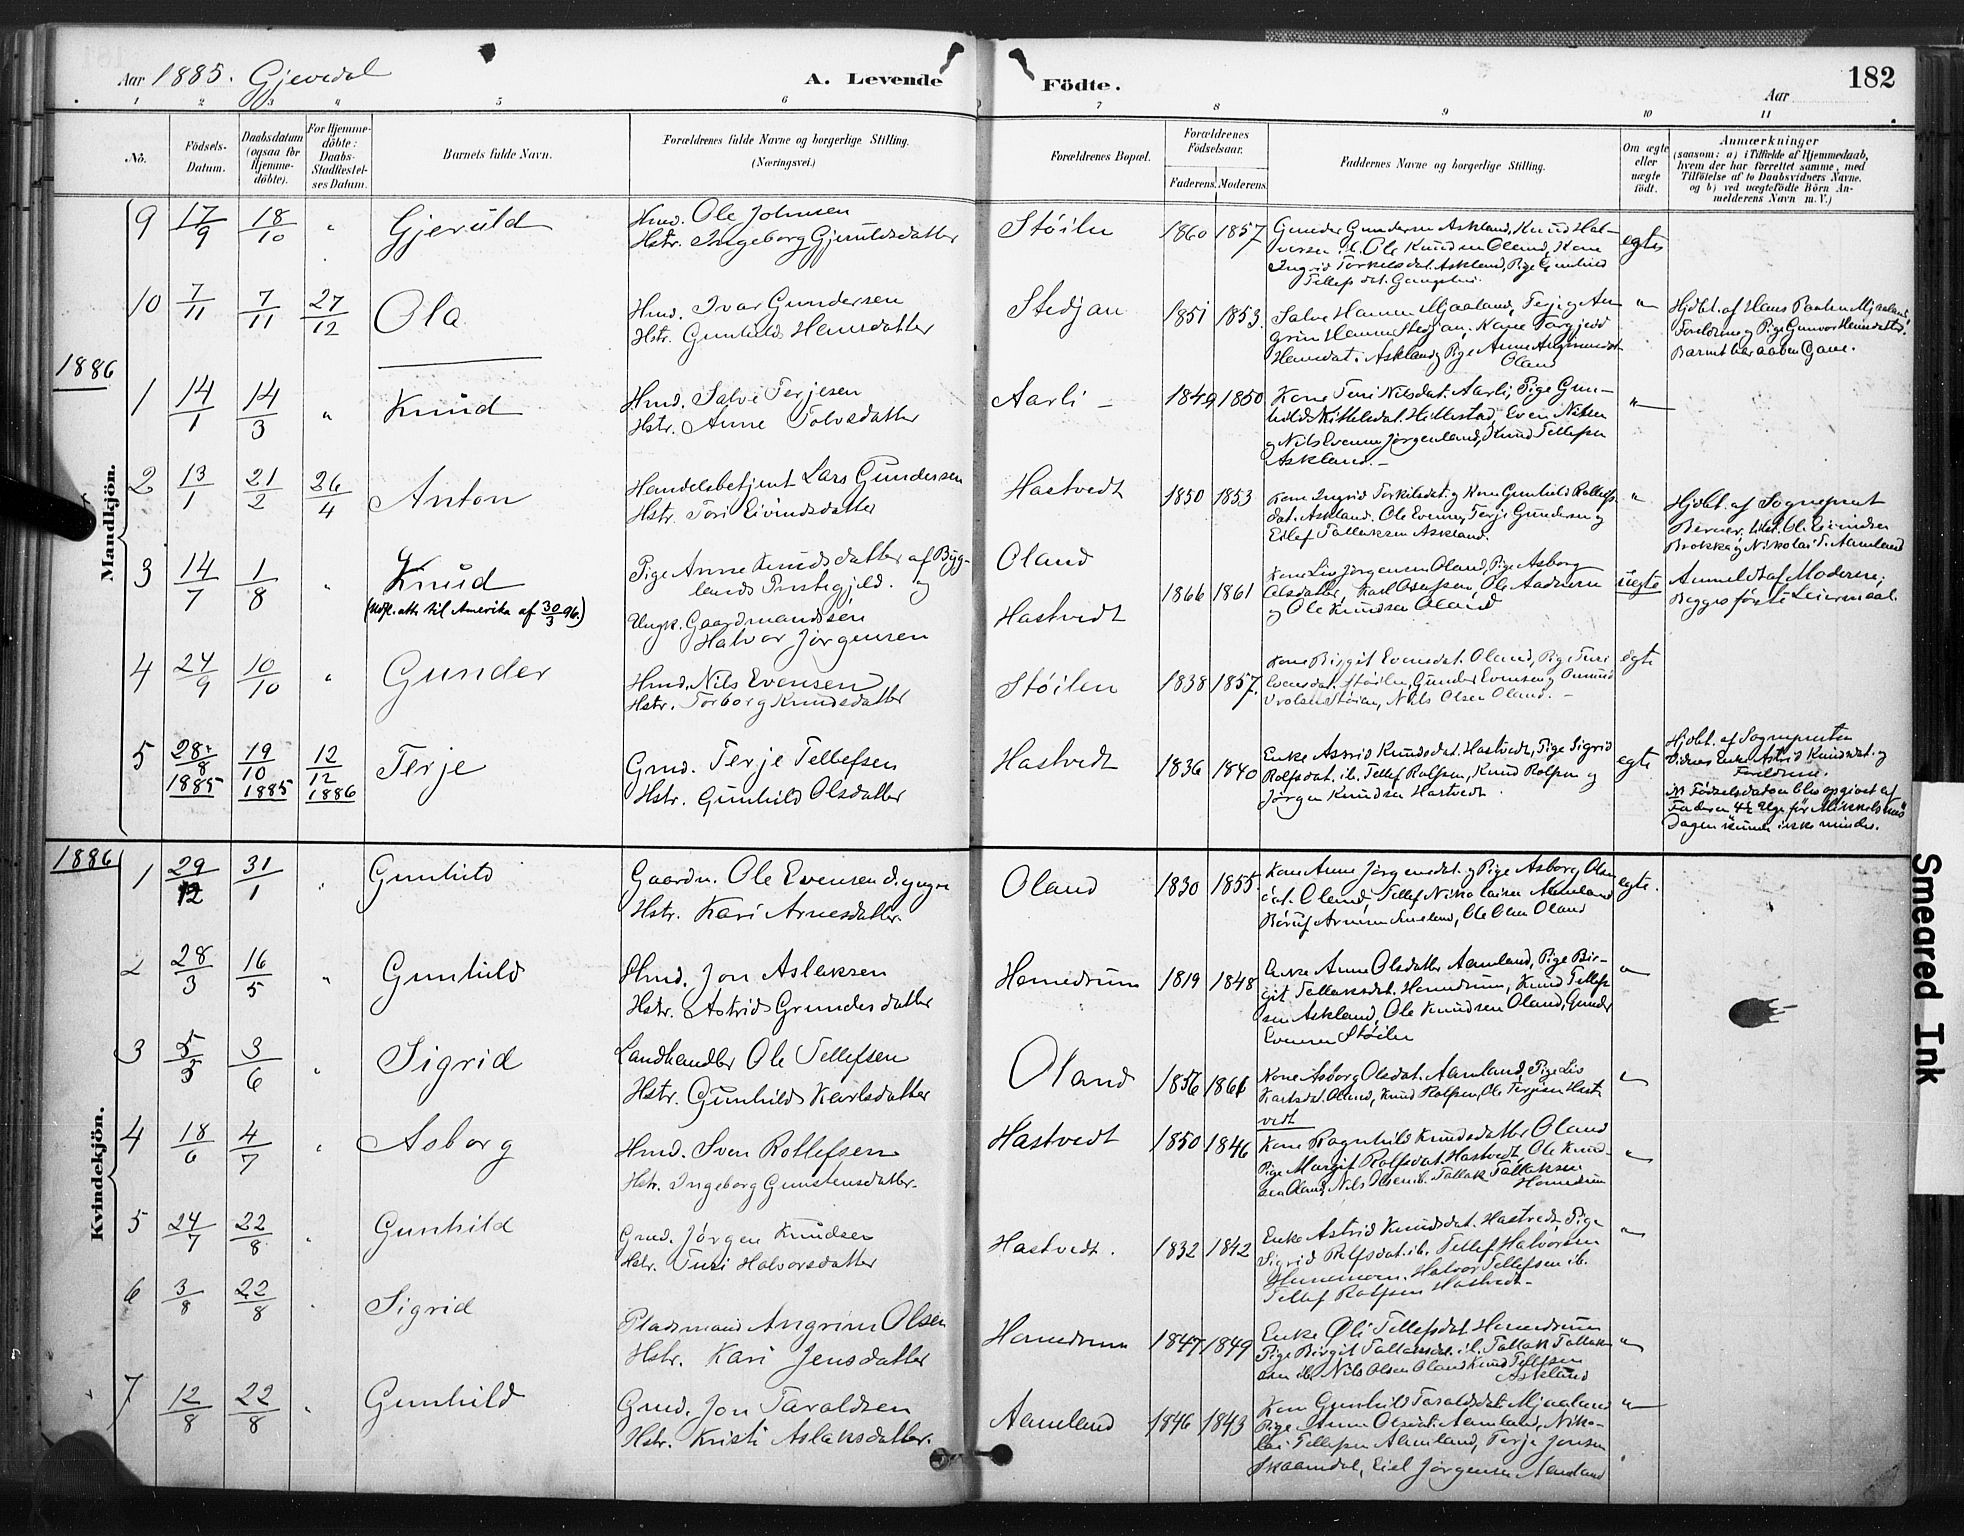 Aar 1885. Gjevedal
A. Levende Födte.
Aar
182
1 2 3 4 5 6 7 8 9 10 11
No.
Födsels-Datum.
Daabsdatum (ogsaa for Hjemme-döbte).
For Hjemme-döbte: Daabs-Stadfæstel-ses Datum.
Barnets fulde Navn.
Forældrenes fulde Navne og borgerlige Stilling. (Næringsvei.)
Forældrenes Bopæl.
Forældrenes Födselsaar.
Faderens. Moderens.
Faddernes Navne og borgerlige Stilling.
Om ægte eller uægte födt.
Anmærkninger
(saasom: a) i Tilfælde af Hjemmedaab,
hvem der har forrettet samme, med
Tilföielse af to Daabsvidners Navne.
og b) ved uægtefödte Börn An-
melderens Navn m. V.)
Mandkjön.
9 17/9 18/10 " Gjeruld
Hmd. Ole Johnsen
Hstr. Ingeborg Gjeruldsdatter
Støilen 1860 1857
Gunder Gundersen Askland, Knud Hal-
vorsen ib. Ole Knudsen Oland, Kone
Ingrid Torkilsdat. Askland, Pige Gunhild
Tellefsdat.
egte
10 7/11 7/11 27/12 Ola
Hmd. Ivar Gundersen
Hstr. Gunhild Hansdatter
Stedjan 1851 1853.
Salve Hansen Mjaaland, Terje An-
grim Hansen Stedjan, Kone Torgjerd
Hansdat. Askland, Pige Anne
Oland
"
Hjdbt. af Hans Mjaaland,
Forældrene og Pige Gunvor Hansdatter.
Barnet har aaben Gane.
1886
1 14/1 14/3 " Knud
Hmd. Salve Terjesen
Hstr. Anne Tolvsdatter
Aarli - 1849 1850
Kone Turi Nilsdat. Aarli, Pige Gun-
hild Kittilsdat. Hillestad, Even Nilsen
og Nils Evensen Jørgenland, Knud Tellefsen
Askland. -
"
2 13/1 21/2 26/4 Anton
Handelsbetjent Lars Gundersen
Hstr. Tori Eivindsdatter
Hastvedt 1850 1853
Kone Ingrid Torkilsdat. og Kone Gunhild Rollefs-
dat. Askland. Ole Evensen, Terje Gundersen og
Eilef Tallaksen Askland.
"
Hjdbt. af Sogneprest
Berner, Ole Eivindsen
Brokke og Nikolai T. Aamland
3 14/7 1/8 " Knud
(Udfl. att. til Amerika af 30/3 96.)
Pige Anne Knudsdatter af Bygg-
lands Prestegjeld. og
Ungk. Gaardmandssøn
Halvor Jørgensen
Oland
Hastvedt
1866 1861
Kone Liv Jørgensen Oland, Pige Asborg
Olsdatter, Karl Olsen, Ole Aadnesen
og Ole Knudsen Oland
uegte
Anmeldt af Moderen;
Begges første Leiermaal.
4 24/9 10/10 " Gunder
Hmd. Nils Evensen
Hstr. Torborg Knudsdatter
Støilen 1838 1857.
Kone Birgit Evensdat. Oland, Pige Turi
Evensdat. Støilen, Gunder Evensen og Omund
Støilen, Nils Olsen Oland. -
egte
5 28/8 1885 19/10 1885 12/12 1886 Terje
Gmd. Terje Tellefsen
Hstr. Gunhild Olsdatter
Hastvedt 1836 1840
Enke Astrid Knudsdat. Hastvedt, Pige Sigrid
Rolfsdat. ib. Tellef Rolfsen, Knud Rolfsen og
Jørgen Knudsen Hastvedt.
egte
Hjdbt. af Sognepresten
Vidner Enke Astrid Knudsdat. og
Forældrene.
Fødselsdatoen blev opgivet af
Faderen 4½ Uge før Mikkelsmes
Dagen kunde ikke mindes.
Kvindekjön.
1886
1 29/12 31/1 " Gunhild
Gaardm. Ole Evensen d. yngre
Hstr. Kari Arnesdatter.
Oland 1830 1855.
Kone Anne Jørgensdat. og Pige Asborg Olsen
dat. Oland, Tellef Nikolaisen Aamland
Arnesen Smeland, Ole Olsen Oland
egte.
2 28/3 16/5 " Gunhild
Hmd. Jon Aslaksen
Hstr. Astrid Gundersdatter
Homedrum 1819 1848
Enke Anne Olsdatter Aamland, Pige Bir-
git Tallaksdat. Homedrum, Knud Tellef-
sen Askland, Ole Knudsen Oland, Gunder
Evensen Støilen
"
3 5/5 3/6 " Sigrid
Landhandler Ole Tellefsen
Hstr. Gunhild Karlsdatter
Oland 1856 1861
Kone Asborg Olsdat. Aamland, Pige Liv
Karlsdat. Oland, Knud Rolfsen, Ole Terjesen Hast-
vedt
"
4 18/6 4/7 " Asborg
Hmd. Sven Rollefsen
Hstr. Ingeborg Gunstensdatter.
Hastvedt 1850 1846
Kone Ragnhild Knudsdatter Oland
Pige Margit Rolfsdat. Hastvedt, Ole Knud-
sen Oland, Nils Olsen ib. Tallak Tallaksen
Homedrum
"
5 24/7 22/8 " Gunhild
Gmd. Jørgen Knudsen
Hstr. Turi Halvorsdatter
Hastvedt. 1832 1842
Enke Astrid Knudsdat. Hastvedt, Pige
Sigrid Rolfsdat. ib. Tellef Halvorsen
Halvor Tellefsen ib.
Tellef Rolfsen Hastvedt -
"
6 3/8 22/8 " Sigrid
Pladsmand Angrim Olsen
Hstr. Kari Jensdatter
Homedrum 1847 1849
Enke Øli Tellefsdat. Homedrum
Pige Birgit Tallaksdat. ib. Tallak Tallak-
sen ib. Nils Olsen Oland Knud Tellefsen
Askland
"
7 12/8 22/8 " Gunhild
Gmd. Jon Taraldsen
Hstr. Kristi Aslaksdatter.
Aamland 1846 1843
Kone Gunhild Taraldsdat. Mjaaland
Pige Anne Olsdat. Aamland, Niko-
lai Tellefsen Aamland, Terje Jonsen
Skaamdal, Eiel Jørgensen Aamland
"
Smeared Ink